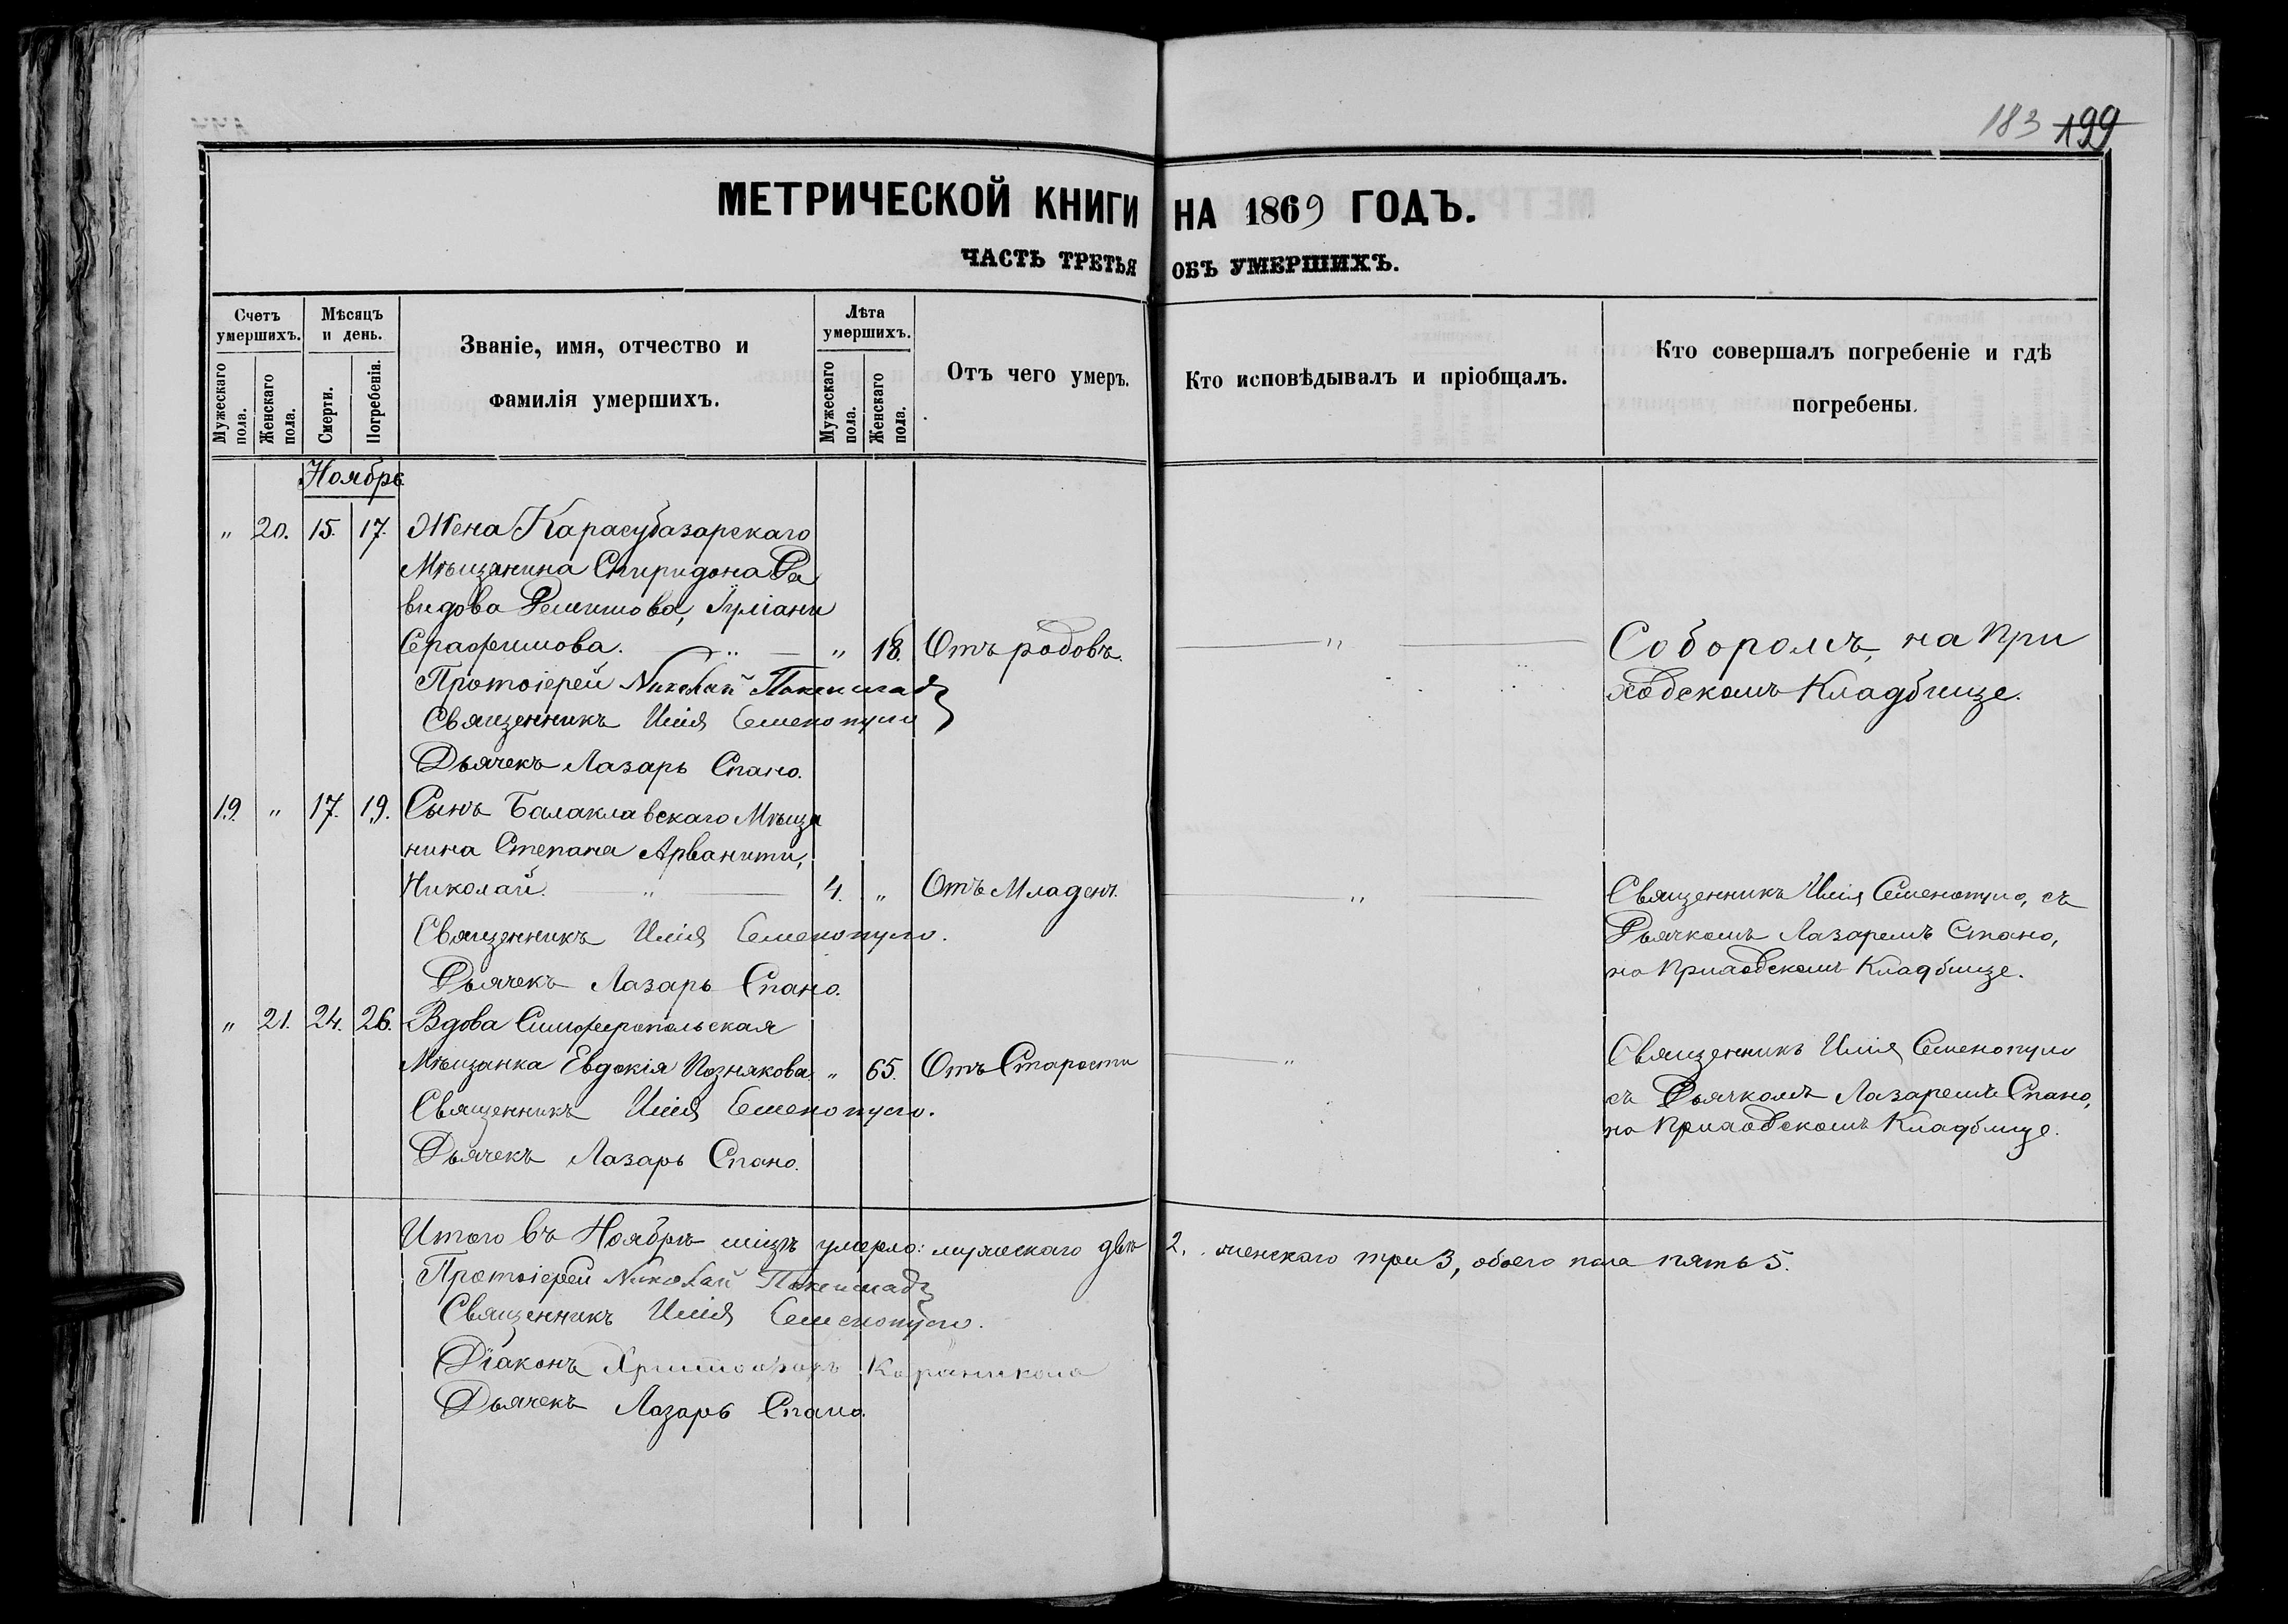 183 199
МЕТРИЧЕСКОЙ КНИГИ НА 1869 ГОДЪ.
ЧАСТЬ ТРЕТЬЯ ОБЪ УМЕРШИХЪ.
Счетъ умершихъ.
Мужескаго пола.
Женскаго пола.
Мѣсяцъ и день.
Смерти.
Погребенія.
Званіе, имя, отчество и
фамилія умершихъ.
Лѣта умершихъ.
Мужескаго пола.
Женскаго пола.
Отъ чего умеръ.
Кто исповѣдывалъ и пріобщалъ.
Кто совершалъ погребеніе и гдѣ
погребены.
Ноябрь
" 20. 15. 17. Жена Карасубазарскаго
Мѣщанина Спиридона Да
видова
Серафимова. " — " 18. Отъ родовъ. — " — Соборомъ, на при
Протоіерей Николай
ходскомъ Кладбище.
Священникъ Илія Семенопуло
Дьячекъ Лазарь Спано.
19. " 17. 19. Сынъ Балаклавскаго Мѣща
нина Степана Арванити,
Николай. " — 4. " Отъ Младен. — " — Священникъ Илія Семенопуло, съ
Священникъ Илія Семенопуло.
Дьячкомъ Лазаремъ Спано,
Дьячекъ Лазарь Спано.
на приходскомъ Кладбище.
" 21. 24. 26. Вдова Симферопольская
Мѣщанка Евдокія Познякова. " 65. Отъ Старости — " Священникъ Илія Семенопуло
Священникъ Илія Семенопуло.
съ Дьячкомъ Лазаремъ Спано,
Дьячекъ Лазарь Спано.
на приходскомъ Кладбище.
Итого въ Ноябрѣ мѣцѣ умерло: мужескаго два 2. женскаго три 3, обоего пола пять 5.
Протоіерей Николай
Священникъ Илія Семенопуло.
Діаконъ Христофоръ Караникола
Дьячекъ Лазарь Спано.